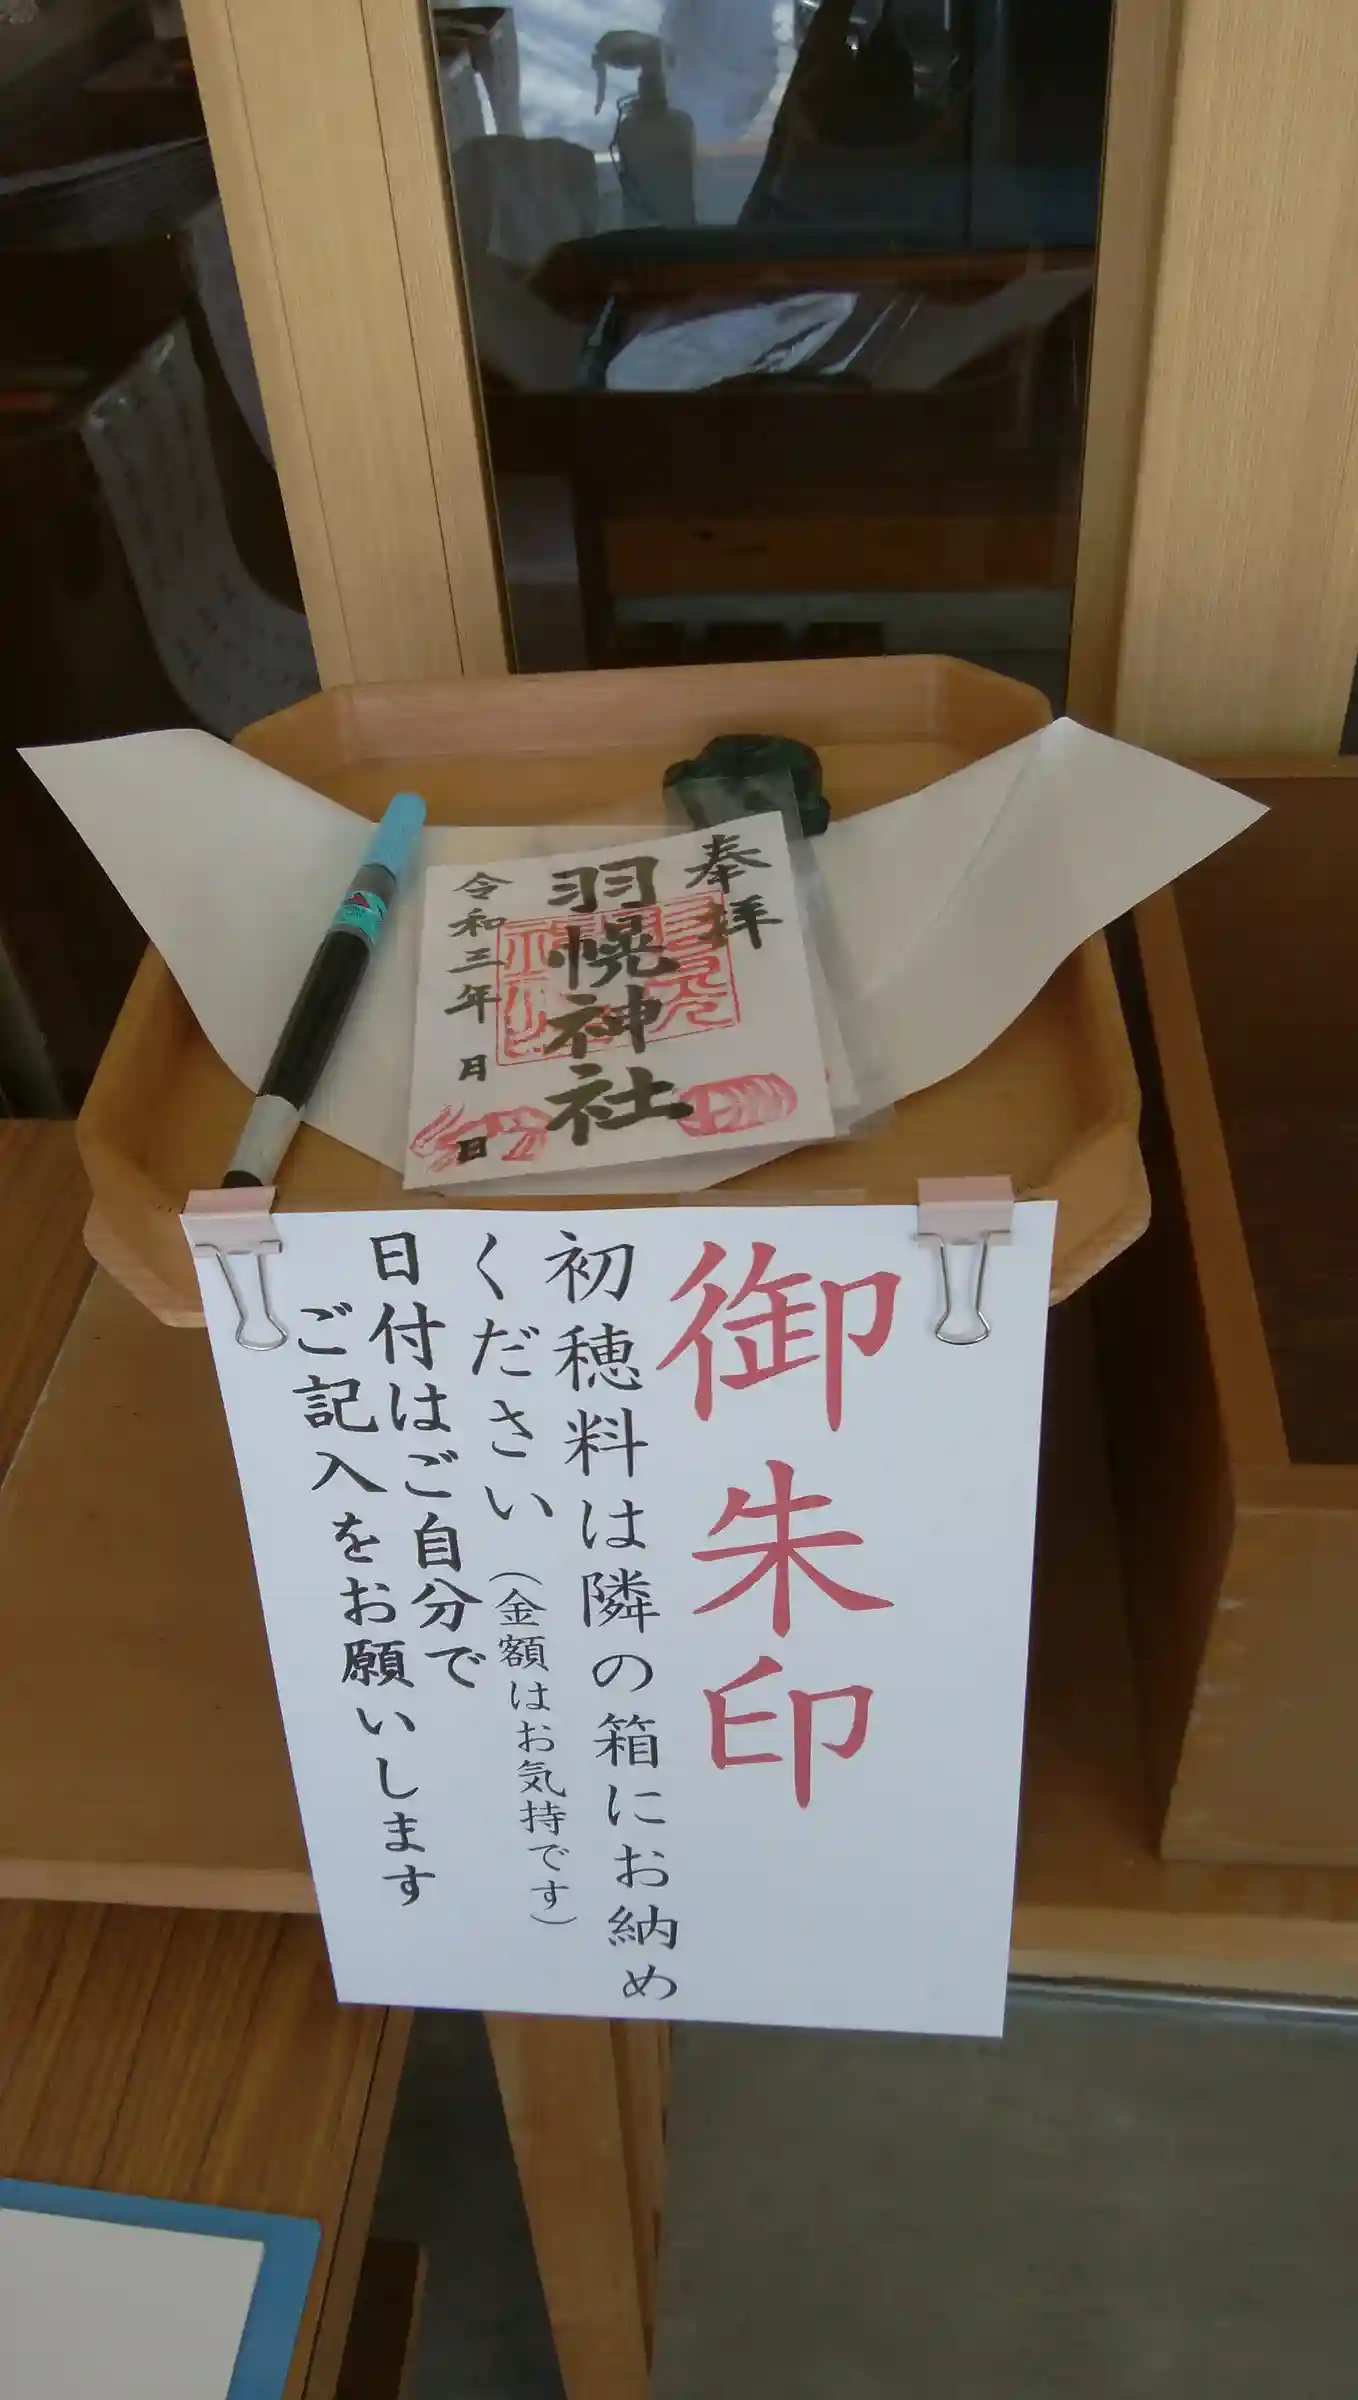 奉拝
羽幌神社
令和三年 月 日
御朱印
初穂料は隣の箱にお納め
ください（金額はお気持です）
日付はご自分で
ご記入をお願いします